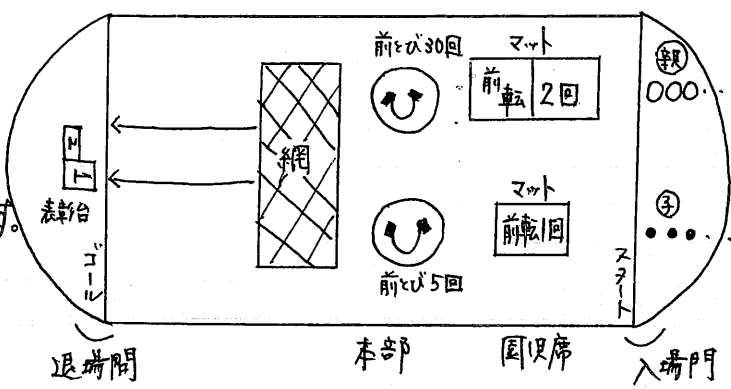 前とび30回
マット
前転
2回
親
網
2
1
表彰台
マット
前転1回
子
前とび5回
ゴール
スタート
退場門
本部
園児席
入場門